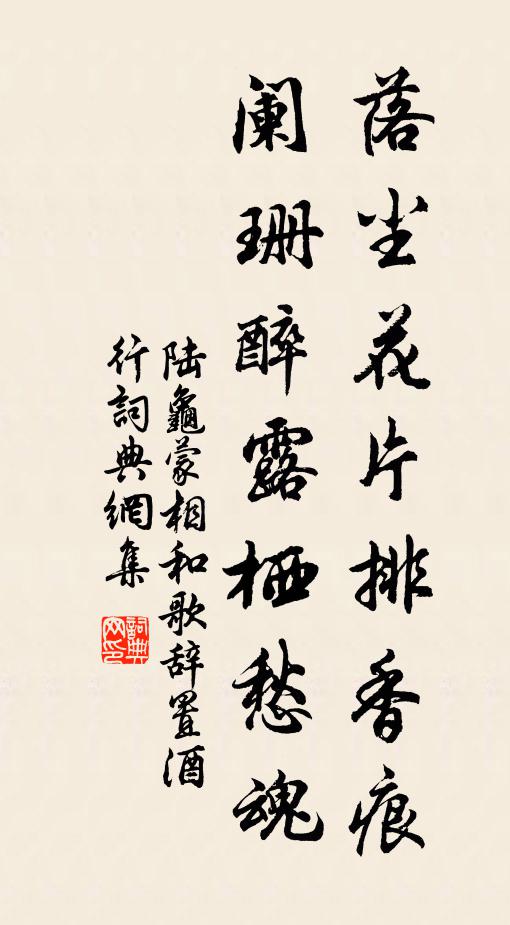 落尘花片排香痕
阑珊醉露栖愁魂
陆龜蒙相和歌辞置酒
行詞典網集
詞典
网印